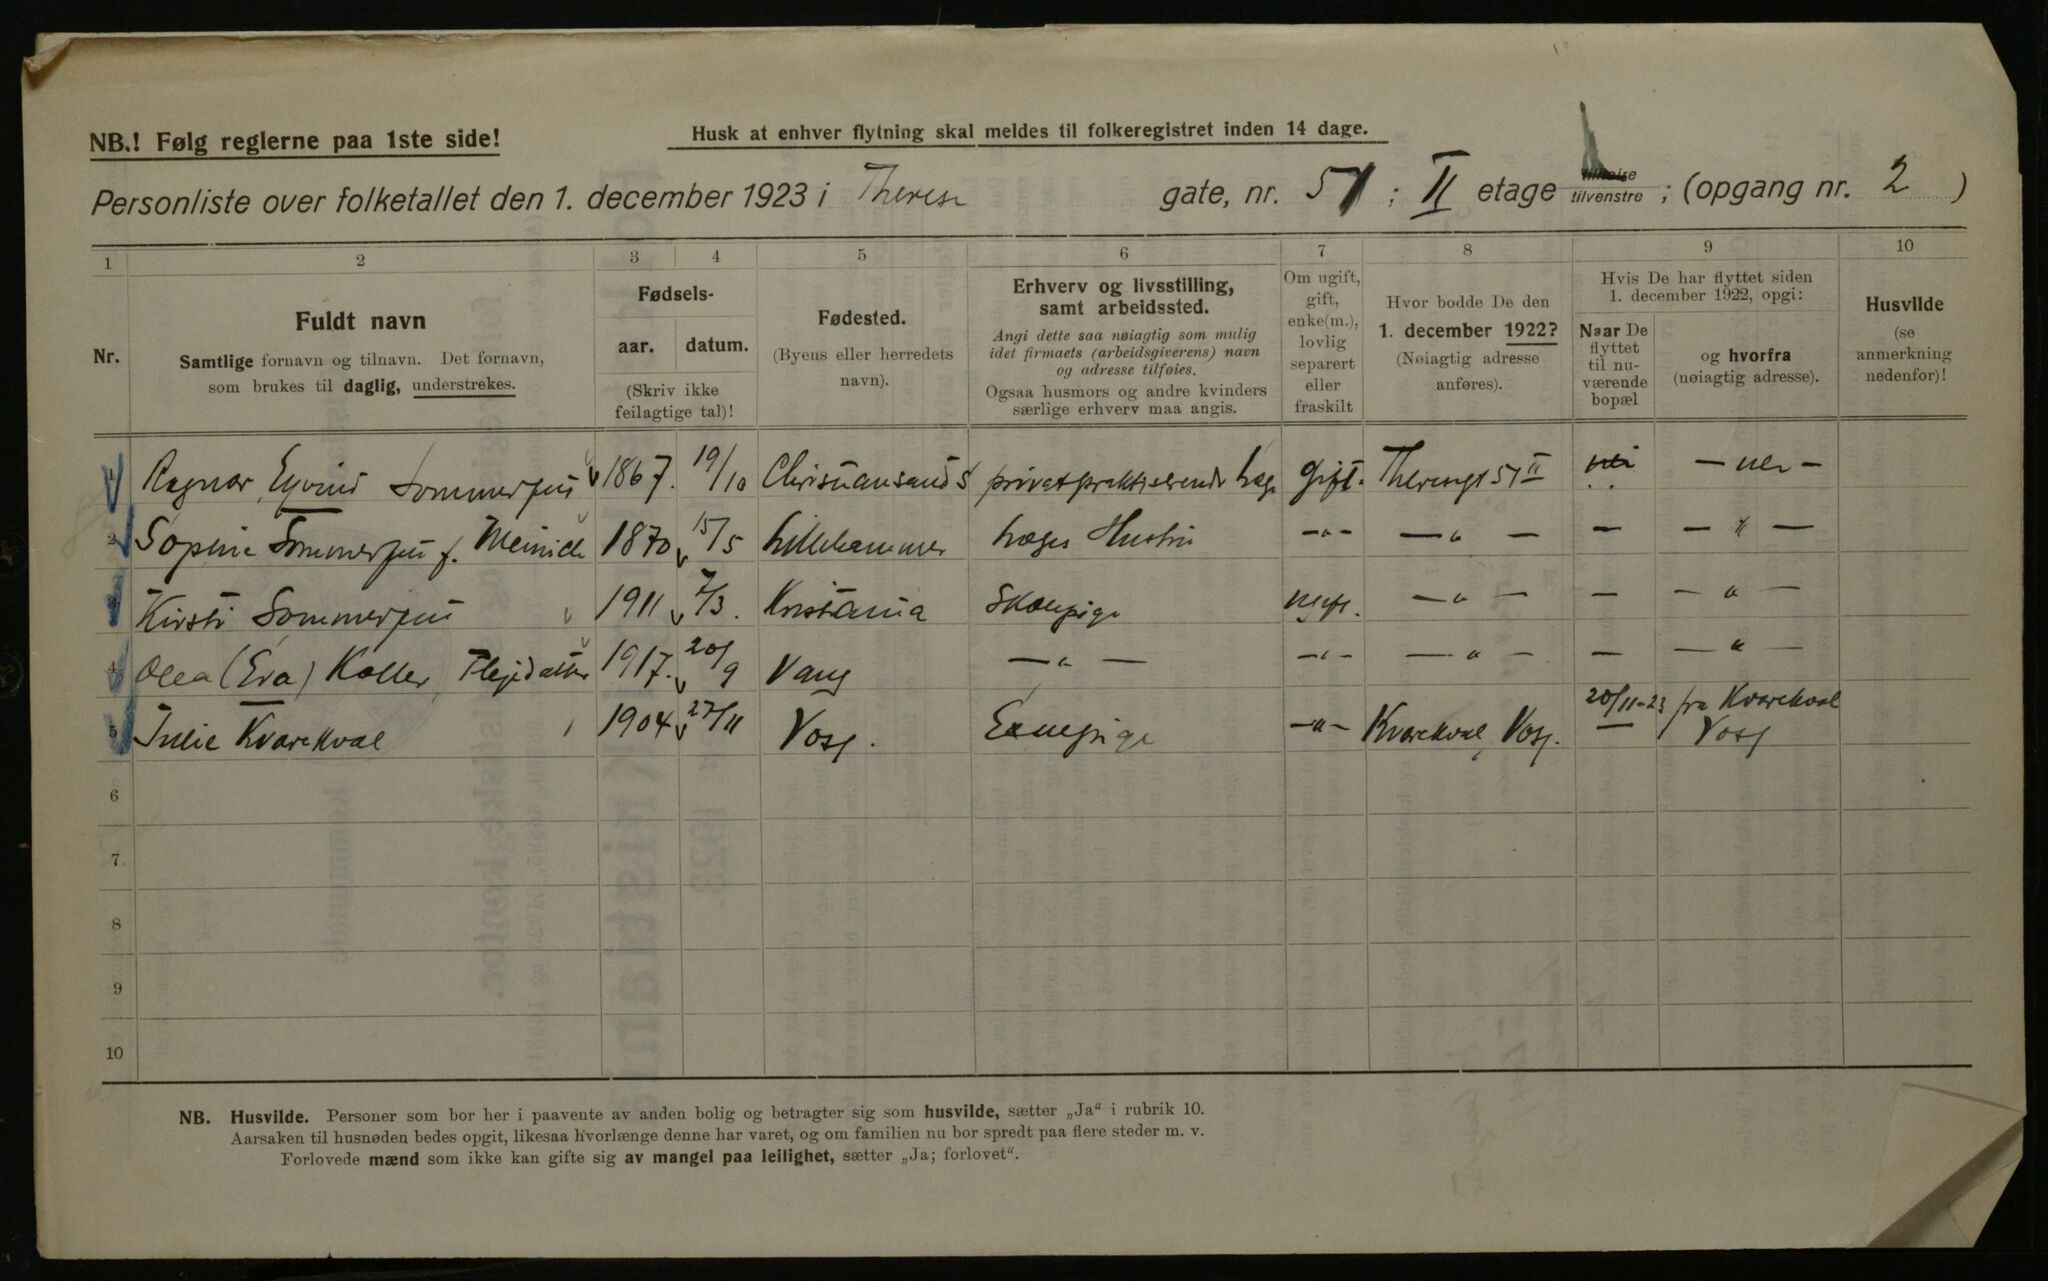 NB.! Følg reglerne paa 1ste side!
Husk at enhver flytning skal meldes til folkeregistret inden 14 dage.
Personliste over folketallet den 1. december 1923 i Therese gate, nr. 51 ; II etage tilhøire tilvenstre ; (opgang nr. 2 )
1 2 3 4 5 6 7 8 9 10
Nr.
Fuldt navn
Samtlige fornavn og tilnavn. Det fornavn,
som brukes til daglig, understrekes.
Fødsels-
aar. datum.
(Skriv ikke
feilagtige tal)!
Fødested.
(Byens eller herredets
navn).
Erhverv og livsstilling,
samt arbeidssted.
Angi dette saa nøiagtig som mulig
idet firmaets (arbeidsgiverens) navn
og adresse tilføies.
Ogsaa husmors og andre kvinders
særlige erhverv maa angis.
Om ugift,
gift,
enke(m.),
lovlig
separert
eller
fraskilt
Hvor bodde De den
1. december 1922?
(Nøiagtig adresse
anføres).
Hvis De har flyttet siden
1. december 1922, opgi:
Naar De
flyttet
til nu-
værende
bopæl
og hvorfra
(nøiagtig adresse).
Husvilde
(se
anmerkning
nedenfor)!
1 Ragnar Eyvind 1867. 19/10 Christiansand S privatpraktiserende læge gift. Theresgt 51 II nei — nei —
2 Sommer f. 1870 15/5 Lillehammer Læges Hustru — " — — " — — — " —
3 Kirsti 1911 7/3. Kristiania Skolepige ugift. — " — — — " —
4 Olea (Eva) Koller, Plejedatter 1917. 20/9 Vang — " — — " — — " — — — " —
5 Julie Kvarekval 1904 27/11 Voss. — " — Kvarekval, Voss. 20/11-23 — fra Kvarekval
Voss
6
7
8
9
10
NB. Husvilde. Personer som bor her i paavente av anden bolig og betragter sig som husvilde, sætter „Ja“ i rubrik 10.
Aarsaken til husnøden bedes opgit, likesaa hvorlænge denne har varet, og om familien nu bor spredt paa flere steder m. v.
Forlovede mænd som ikke kan gifte sig av mangel paa leilighet, sætter „Ja; forlovet“.